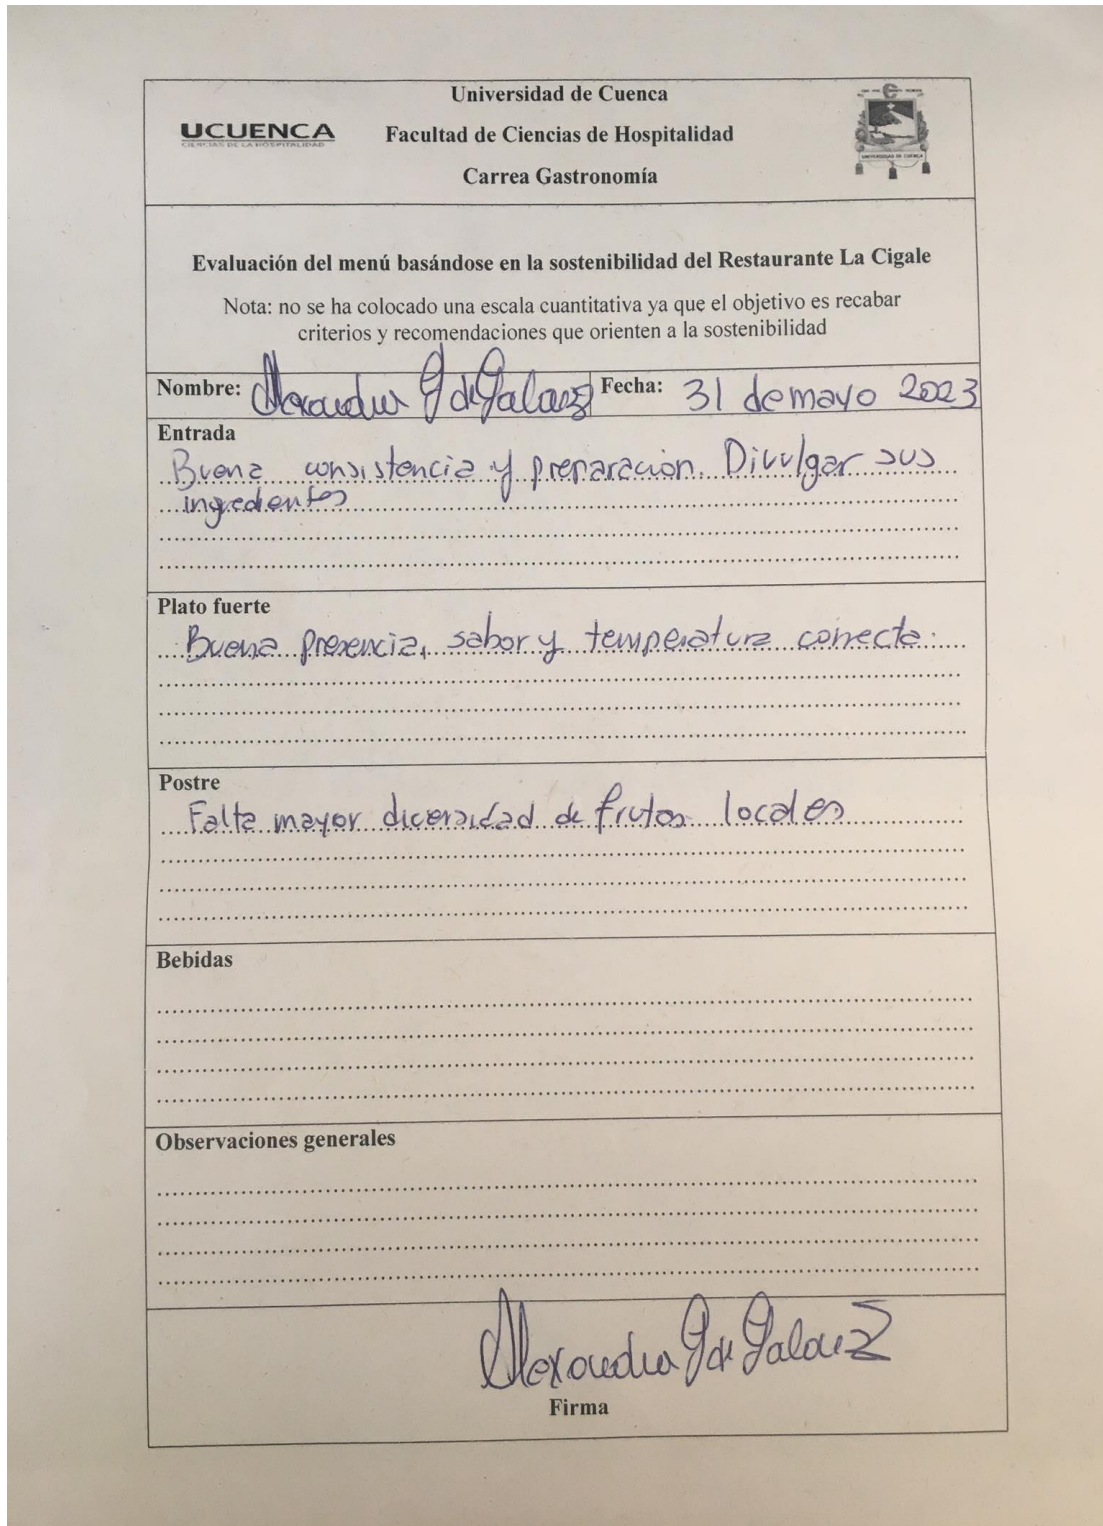 Universidad de Cuenca
UCUENCA
CIENCIAS DE LA HOSPITALIDAD
Facultad de Ciencias de Hospitalidad
Carrea Gastronomía
UNIVERSIDAD DE CUENCA
Evaluación del menú basándose en la sostenibilidad del Restaurante La Cigale
Nota: no se ha colocado una escala cuantitativa ya que el objetivo es recabar
criterios y recomendaciones que orienten a la sostenibilidad
Nombre: Alexandra G de Galarz Fecha: 31 de mayo 2023
Entrada
Buena consistencia y preparación. Divulgar sus
ingredientes
Plato fuerte
Buena presencia, sabor y temperatura correcta.
Postre
Falta mayor diversidad de frutos locales
Bebidas
Observaciones generales
Alexandra G de Galarz
Firma